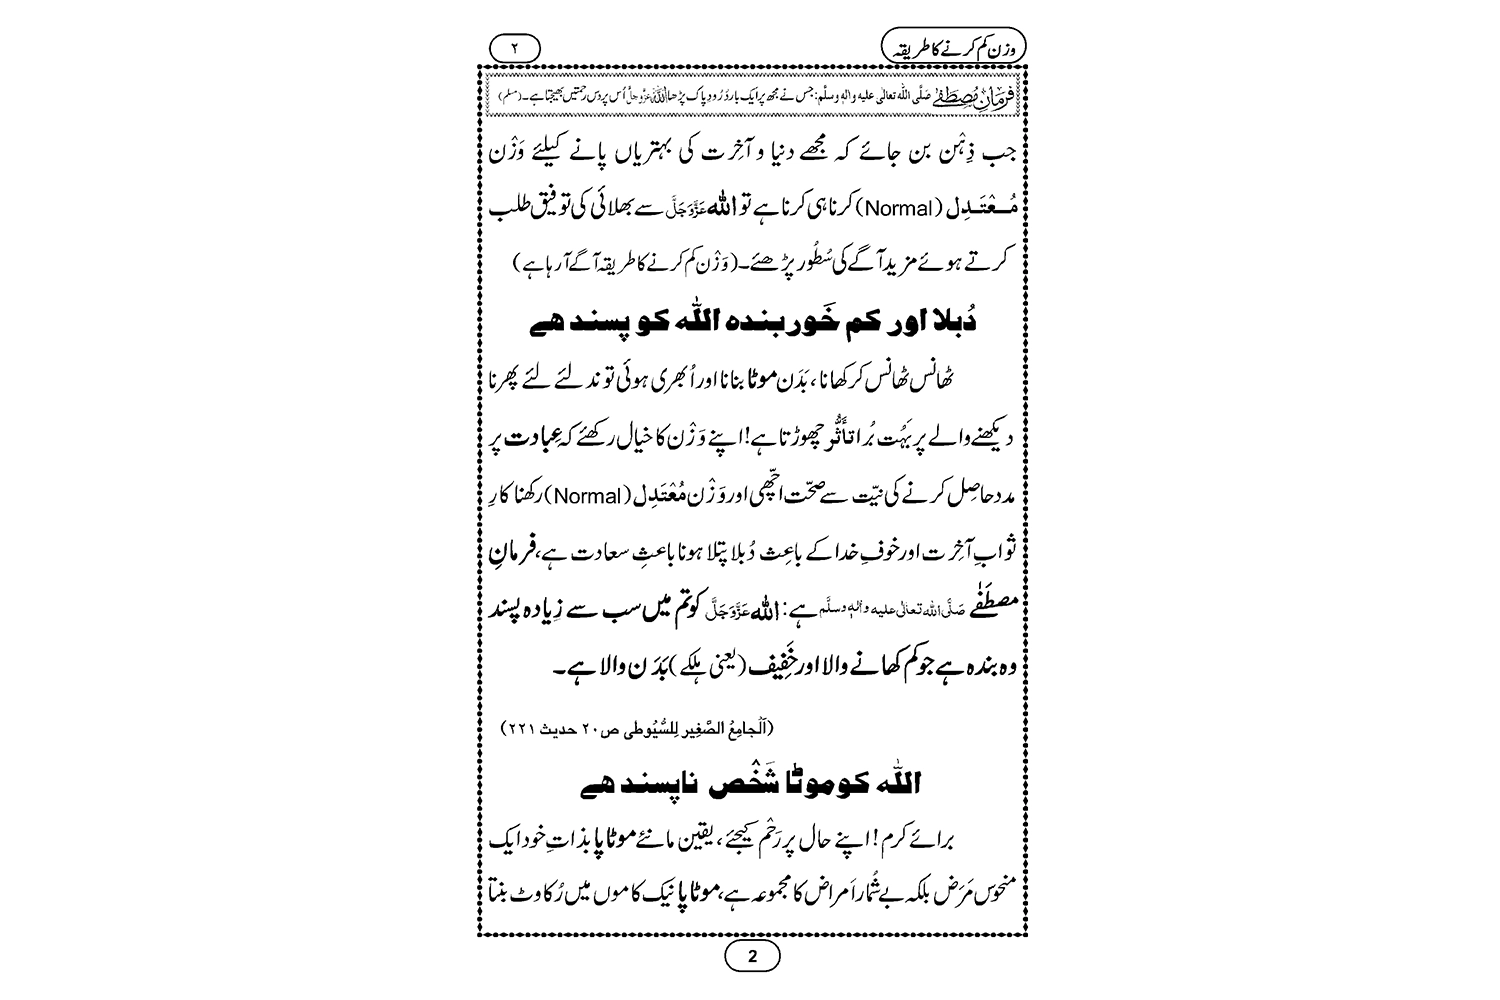 وزن کم کرنے کا طریقہ
۲
فرمانِ مصطفٰے صَلَّی اللہ تعالٰی علیہ والہٖ وسلَّم: جس نے مجھ پر ایک بار دُرُودِ پاک پڑھا اللہ عَزَّوَجَلَّ اُس پر دس رحمتیں بھیجتا ہے۔ (مسلم)
جب ذِہْن بن جائے کہ مجھے دنیا و آخِرت کی بہتریاں پانے کیلئے وَزْن
مُعْتَدِل (Normal) کرنا ہی کرنا ہے تو اللہ عَزَّوَجَلَّ سے بھلائی کی توفیق طلب
کرتے ہوئے مزید آگے کی سُطُور پڑھئے۔ (وَزْن کم کرنے کا طریقہ آگے آرہا ہے)
دُبلا اور کم خَور بندہ اللہ کو پسند ھے
ٹھانس ٹھانس کر کھانا، بَدَن موٹا بنانا اور اُبھری ہوئی توند لئے لئے پھرنا
دیکھنے والے پر بَہُت بُرا تأَثُّر چھوڑتا ہے! اپنے وَزْن کا خیال رکھئے کہ عِبادت پر
مدد حاصِل کرنے کی نیّت سے صحّت اچّھی اور وَزْن مُعْتَدِل (Normal) رکھنا کارِ
ثوابِ آخِرت اور خوفِ خدا کے باعِث دُبلا پتلا ہونا باعثِ سعادت ہے، فرمانِ
مصطَفٰے صَلَّی اللہ تعالٰی علیہ واٰلہٖ وسلَّم ہے: اللہ عَزَّوَجَلَّ کو تم میں سب سے زِیادہ پسند
وہ بندہ ہے جو کم کھانے والا اور خَفِیف (یعنی ہلکے) بَدَن والا ہے۔
(اَلْجامِعُ الصَّغِیر لِلسُّیُوطی ص۲۰ حدیث ۲۲۱)
اللہ کو موٹا شَخْص ناپسند ھے
برائے کرم! اپنے حال پر رَحْم کیجئے، یقین مانئے موٹاپا بذاتِ خود ایک
منحوس مَرَض بلکہ بے شُمار اَمراض کا مجموعہ ہے، موٹاپا نیک کاموں میں رُکاوٹ بنتا
2